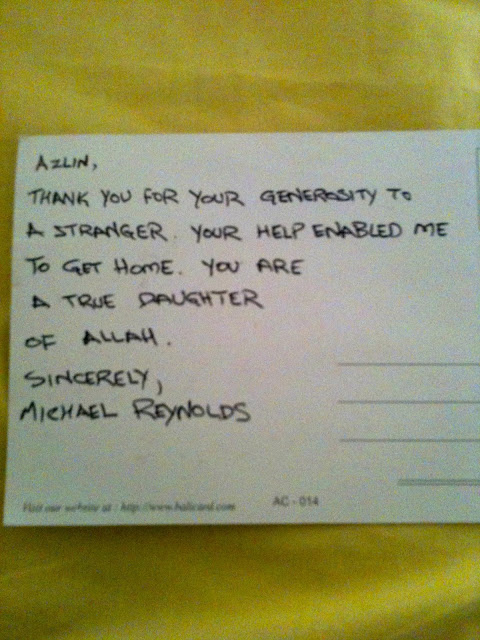 AZLIN,
THANK YOU FOR YOUR GENEROSITY TO
A STRANGER. YOUR HELP ENABLED ME
TO GET HOME. YOU ARE
A TRUE DAUGHTER
OF ALLAH.
SINCERELY,
MICHAEL REYNOLDS
Visit our website at : http://www.balicard.com
AC - 014